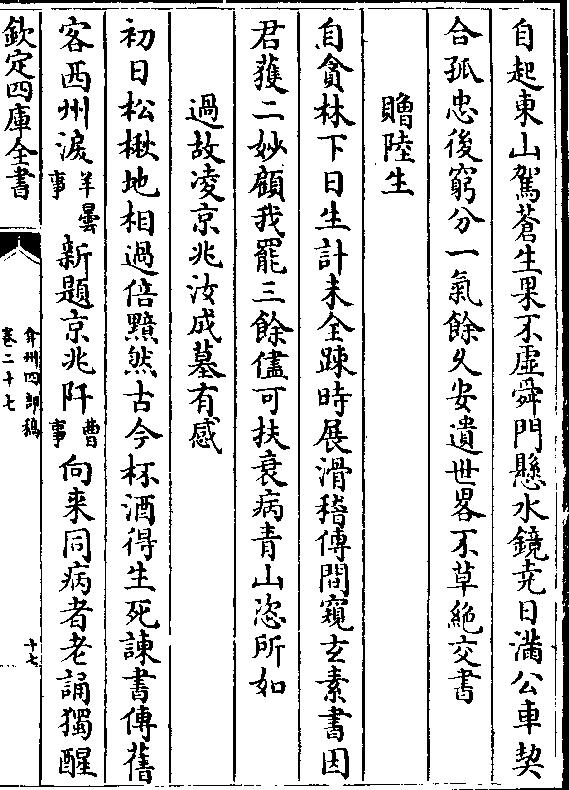 自起東山駕蒼生果不虛舜門懸水鏡尭日滿公車契
合孤忠後窮分一氣餘乆安遺世畧不草絶交書
贈陸生
自貧林下日生計未全踈時展滑稽傳間窺玄素書因
君獲二妙顧我罷三餘儘可扶衰病青山恣所如
過故凌京兆汝成墓有感
初日松楸地相過倍黯然古今杯酒得生死諫書傳舊
客西州淚羊曇事新題京兆阡曹事向来同病者老誦獨醒
欽定四庫全書
弇州四部稿
卷二十七
十七